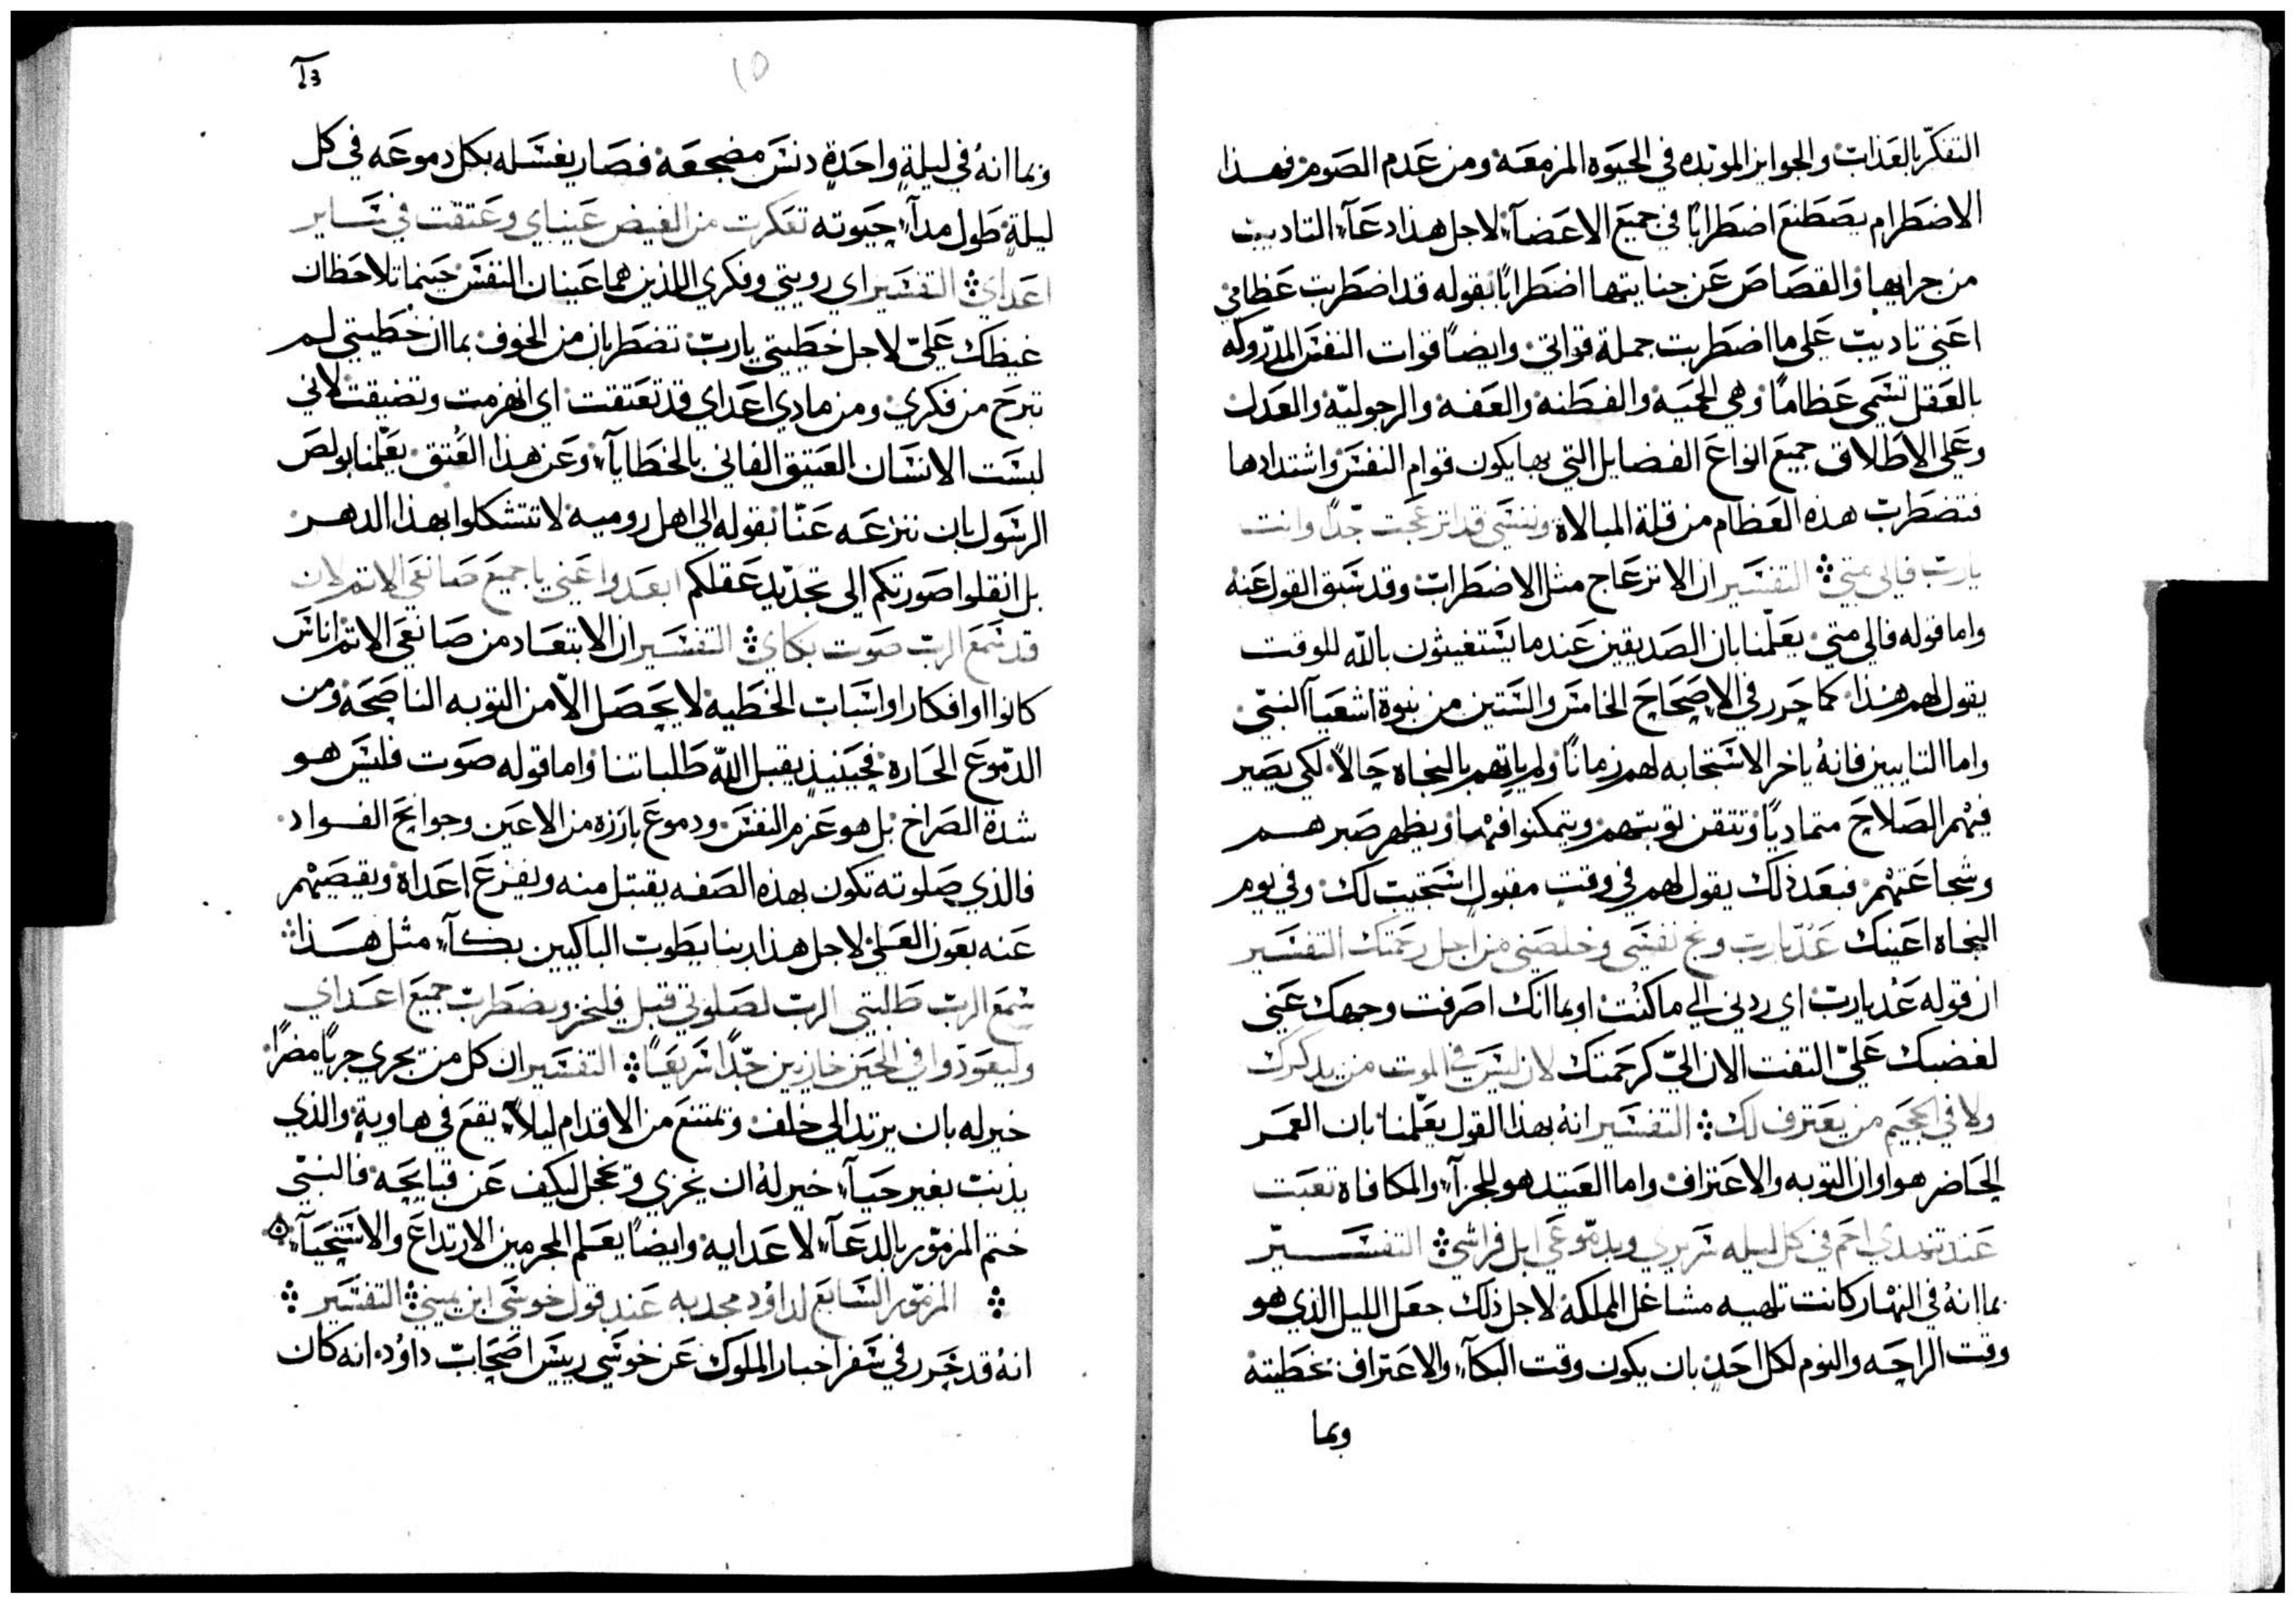 التفكر بالعذاب والجوايز الموبده في الحيوه المزمعه ومن عدم الصوم فهذا
الاضطرام يصطنع اضطرابًا في جميع الاعضآء لاجل هذا دعآء التاديب
من جرايها والقصاص عن جنايتها اضطرابًا بقوله قد اضطربت عظامي
اعني تاديب على ما اضطربت جملة قواتي وايضًا قوات النفس المدروكه
بالعقل تسمى عظامًا وهي الحميه والفطنه والعفه والرجوليّه والعدل
وعلى الاطلاق جميع انواع الفضايل التي بها يكون قوام النفس واشتدادها
فتضطرب هذه العظام من قلة المبالاة ونفسي قد انزعجت جدًا وانت
يارب فالى متي التفسير ان الانزعاج مثل الاضطراب وقد سبق القول عنه
واما قوله فالى متي يعلّمنا بان الصديقين عندما يستغيثون بالله للوقت
يقول لهم هذا كما حرر في الاصحاح الخامس والستين من نبوة اشعيآ النبي
واما التايبين فانه ياخر الاستجابه لهم زمانًا ولم ياتهم بالنجاه حالاً لكي يصير
فيهم الصلاح متماديًا وتتقن توبتهم ويتمكنوا فيها ويظهر صبرهم
وشجاعتهم فبعد ذلك يقول لهم في وقت مقبول استجيب لك وفي يوم
النجاه اعينك عد يارب ونج نفسي وخلصني من اجل رحمتك التفسير
ان قوله عد يارب اي ردني الى ما كنت او بما انك اصرفت وجهك عني
لغضبك عليّ التفت الان اليّ كرحمتك لان ليس في الموت من يذكرك
ولا في الجحيم من يعترف لك التفسير انه بهذا القول يعلّمنا بان العمر
الحاضر هو اوان التوبه والاعتراف واما العتيد هو للجزآء والمكافاة تعبت
عند تنهدي احم في كل ليله سريري وبدموعي ابل فراشي التفسير
بما انه في النهار كانت تلهيه مشاغل المملكة لاجل ذلك جعل الليل الذي هو
وقت الراحه والنوم لكل احد بان يكون وقت البكآء والاعتراف بخطيته
وبما
وبما انه في ليلة واحدة دنس مضجعه فصار يغسله بكل دموعه في كل
ليلة طول مدآء حيوته تعكرت من الغيض عيناي وعتقت في ساير
اعداي التفسير اي رويتي وفكري اللذين هما عينان النفس حينما تلاحظان
غيظك عليّ لاجل خطيتي يارب تضطربان من الخوف بما ان خطيتي لم
تبرح من فكري ومن مادي اعداي قد تعتقت اي انهزمت وتضيقت لاني
لبست الانسان العتيق الفاني بالخطايآء وعن هذا العتق يعلّمنا بولص
الرسول بان ننزعه عنّا بقوله الى اهل روميه لا تتشكلوا بهذا الدهر
بل انقلوا صورتكم الى تجديد عقلكم ابعدوا عني يا جميع صانعي الاثم لان
قد سمع الرب صوت بكاي التفسير ان الابتعاد من صانعي الاثم اناس
كانوا او افكار او اسباب الخطيه لا يحصل الّا من التوبه الناصحه ومن
الدموع الحاره فحينيذ يقبل الله طلباتنا واما قوله صوت فليس هو
شدة الصراخ بل هو عزم النفس ودموع بارزه من الاعين وجوايح الفواد
فالذي صلوته تكون بهذه الصفه يقتبل منه ويفزع اعداه ويقصيهم
عنه بعون العلي لاجل هذا ربنا يطوب الباكيين بكآء مثل هذا
سمع الرب طلبتي الرب لصلوتي قبل فليخز ويضطرب جميع اعداي
وليعودوا في الحين خازيين جدًا سريعًا التفسير ان كل من يجري جريًا مضرًا
خير له بان يرتد الى خلف ويمتنع من الاقدام ليلاّ يقع في هاوية والذي
يذنب بغير حيآء خير له ان يخزي ويخجل ليكف عن قبايحه فالنبي
ختم المزمور بالدعآء لاعدايه وايضًا يعلم المجرمين الارتداع والاستحيآء
المزمور السابع لداوُد مجد به عند قول خوسي ابن يميني التفسير
انه قد حرر في سفر اخبار الملوك عن خوسي رييس اصحاب داوُد انه كان